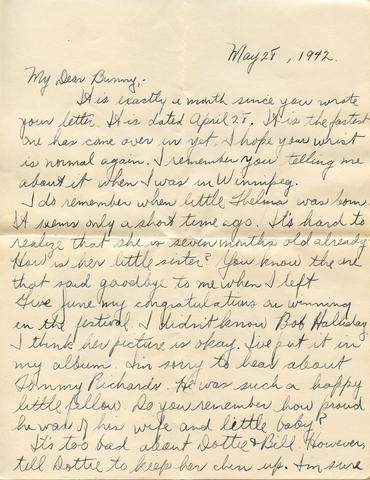 May 28, 1942.
My Dear Bunny,-
It is exactly a month since you wrote
your letter. It is dated April 28. It is the fastest
one has come over in yet. I hope your wrist
is normal again. I remember you telling me
about it when I was in Winnipeg.
I do remember when little Thelma was born.
It seems only a short time ago. It's hard to
realize that she is seven months old already.
How is her little sister? You know the one
that said goodbye to me when I left
Give June my congratulations on winning
in the festival. I didn't know Bob Halliday
I think her picture is okay. I've put it in
my album. I'm sorry to hear about
Tommy Richards. He was such a happy
little fellow. Do you remember how proud
he was of his wife and little baby?
It's too bad about Dottie & Bill. However,
tell Dottie to keep her chin up. I'm sure